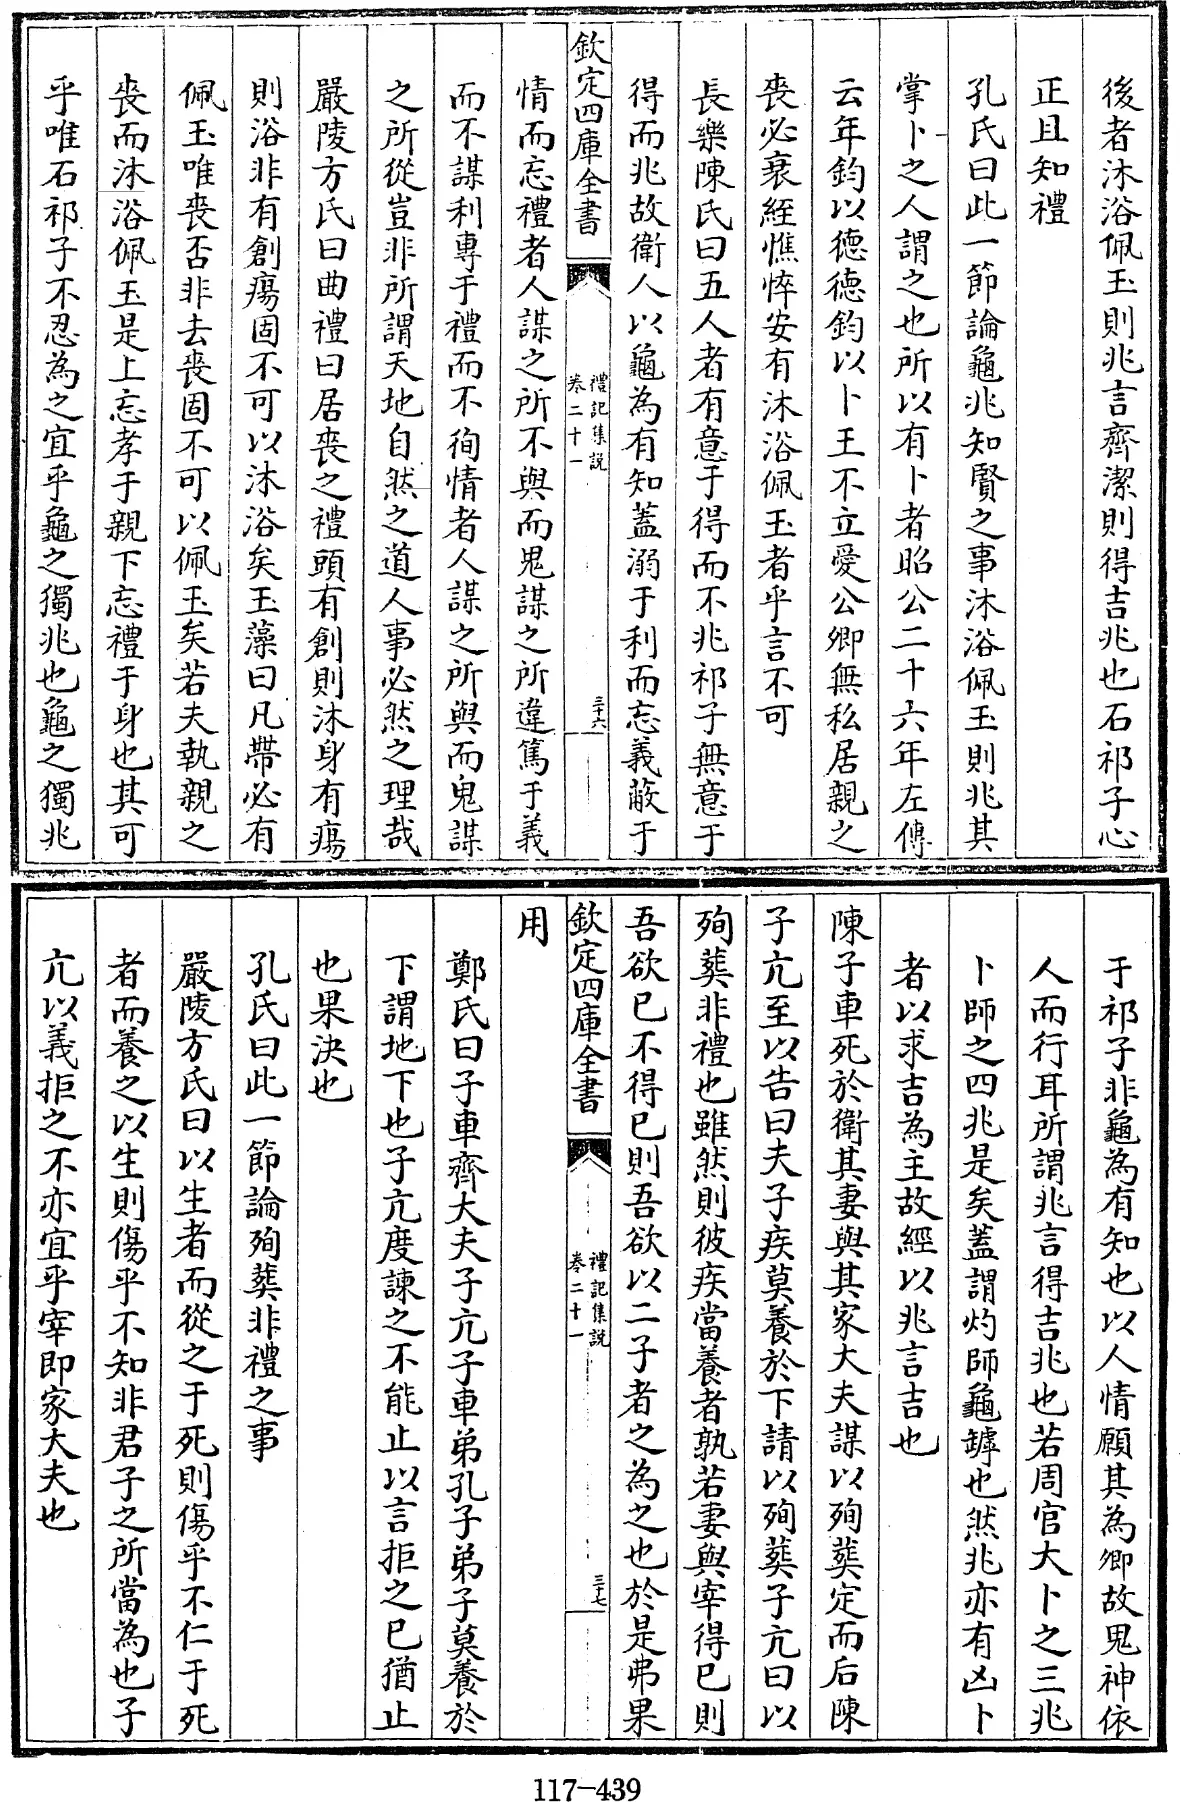 後者沐浴佩玉則兆言齊潔則得吉兆也石祁子心
正且知禮
孔氏曰此一節論龜兆知賢之事沐浴佩玉則兆其
掌卜之人謂之也所以有卜者昭公二十六年左傳
云年鈞以德德鈞以卜王不立愛公卿無私居親之
喪必衰絰憔悴安有沐浴佩玉者乎言不可
長樂陳氏曰五人者有意于得而不兆祁子無意于
得而兆故衛人以龜為有知蓋溺于利而忘義蔽于
欽定四庫全書
禮記集說
卷二十一
三十六
情而忘禮者人謀之所不與而鬼謀之所違篤于義
而不謀利專于禮而不徇情者人謀之所與而鬼謀
之所從豈非所謂天地自然之道人事必然之理哉
嚴陵方氏曰曲禮曰居喪之禮頭有創則沐身有瘍
則浴非有創瘍固不可以沐浴矣玉藻曰凡帶必有
佩玉唯喪否非去喪固不可以佩玉矣若夫執親之
喪而沐浴佩玉是上忘孝于親下忘禮于身也其可
乎唯石祁子不忍為之宜乎龜之獨兆也龜之獨兆
于祁子非龜為有知也以人情願其為卿故鬼神依
人而行耳所謂兆言得吉兆也若周官大卜之三兆
卜師之四兆是矣蓋謂灼師龜罅也然兆亦有凶卜
者以求吉為主故經以兆言吉也
陳子車死於衛其妻與其家大夫謀以殉葬定而后陳
子亢至以告曰夫子疾莫養於下請以殉葬子亢曰以
殉葬非禮也雖然則彼疾當養者孰若妻與宰得已則
吾欲已不得已則吾欲以二子者之為之也於是弗果
欽定四庫全書
禮記集說
卷二十一
三十七
用
鄭氏曰子車齊大夫子亢子車弟孔子弟子莫養於
下謂地下也子亢度諫之不能止以言拒之已猶止
也果決也
孔氏曰此一節論殉葬非禮之事
嚴陵方氏曰以生者而從之于死則傷乎不仁于死
者而養之以生則傷乎不知非君子之所當為也子
亢以義拒之不亦宜乎宰即家大夫也
117-439